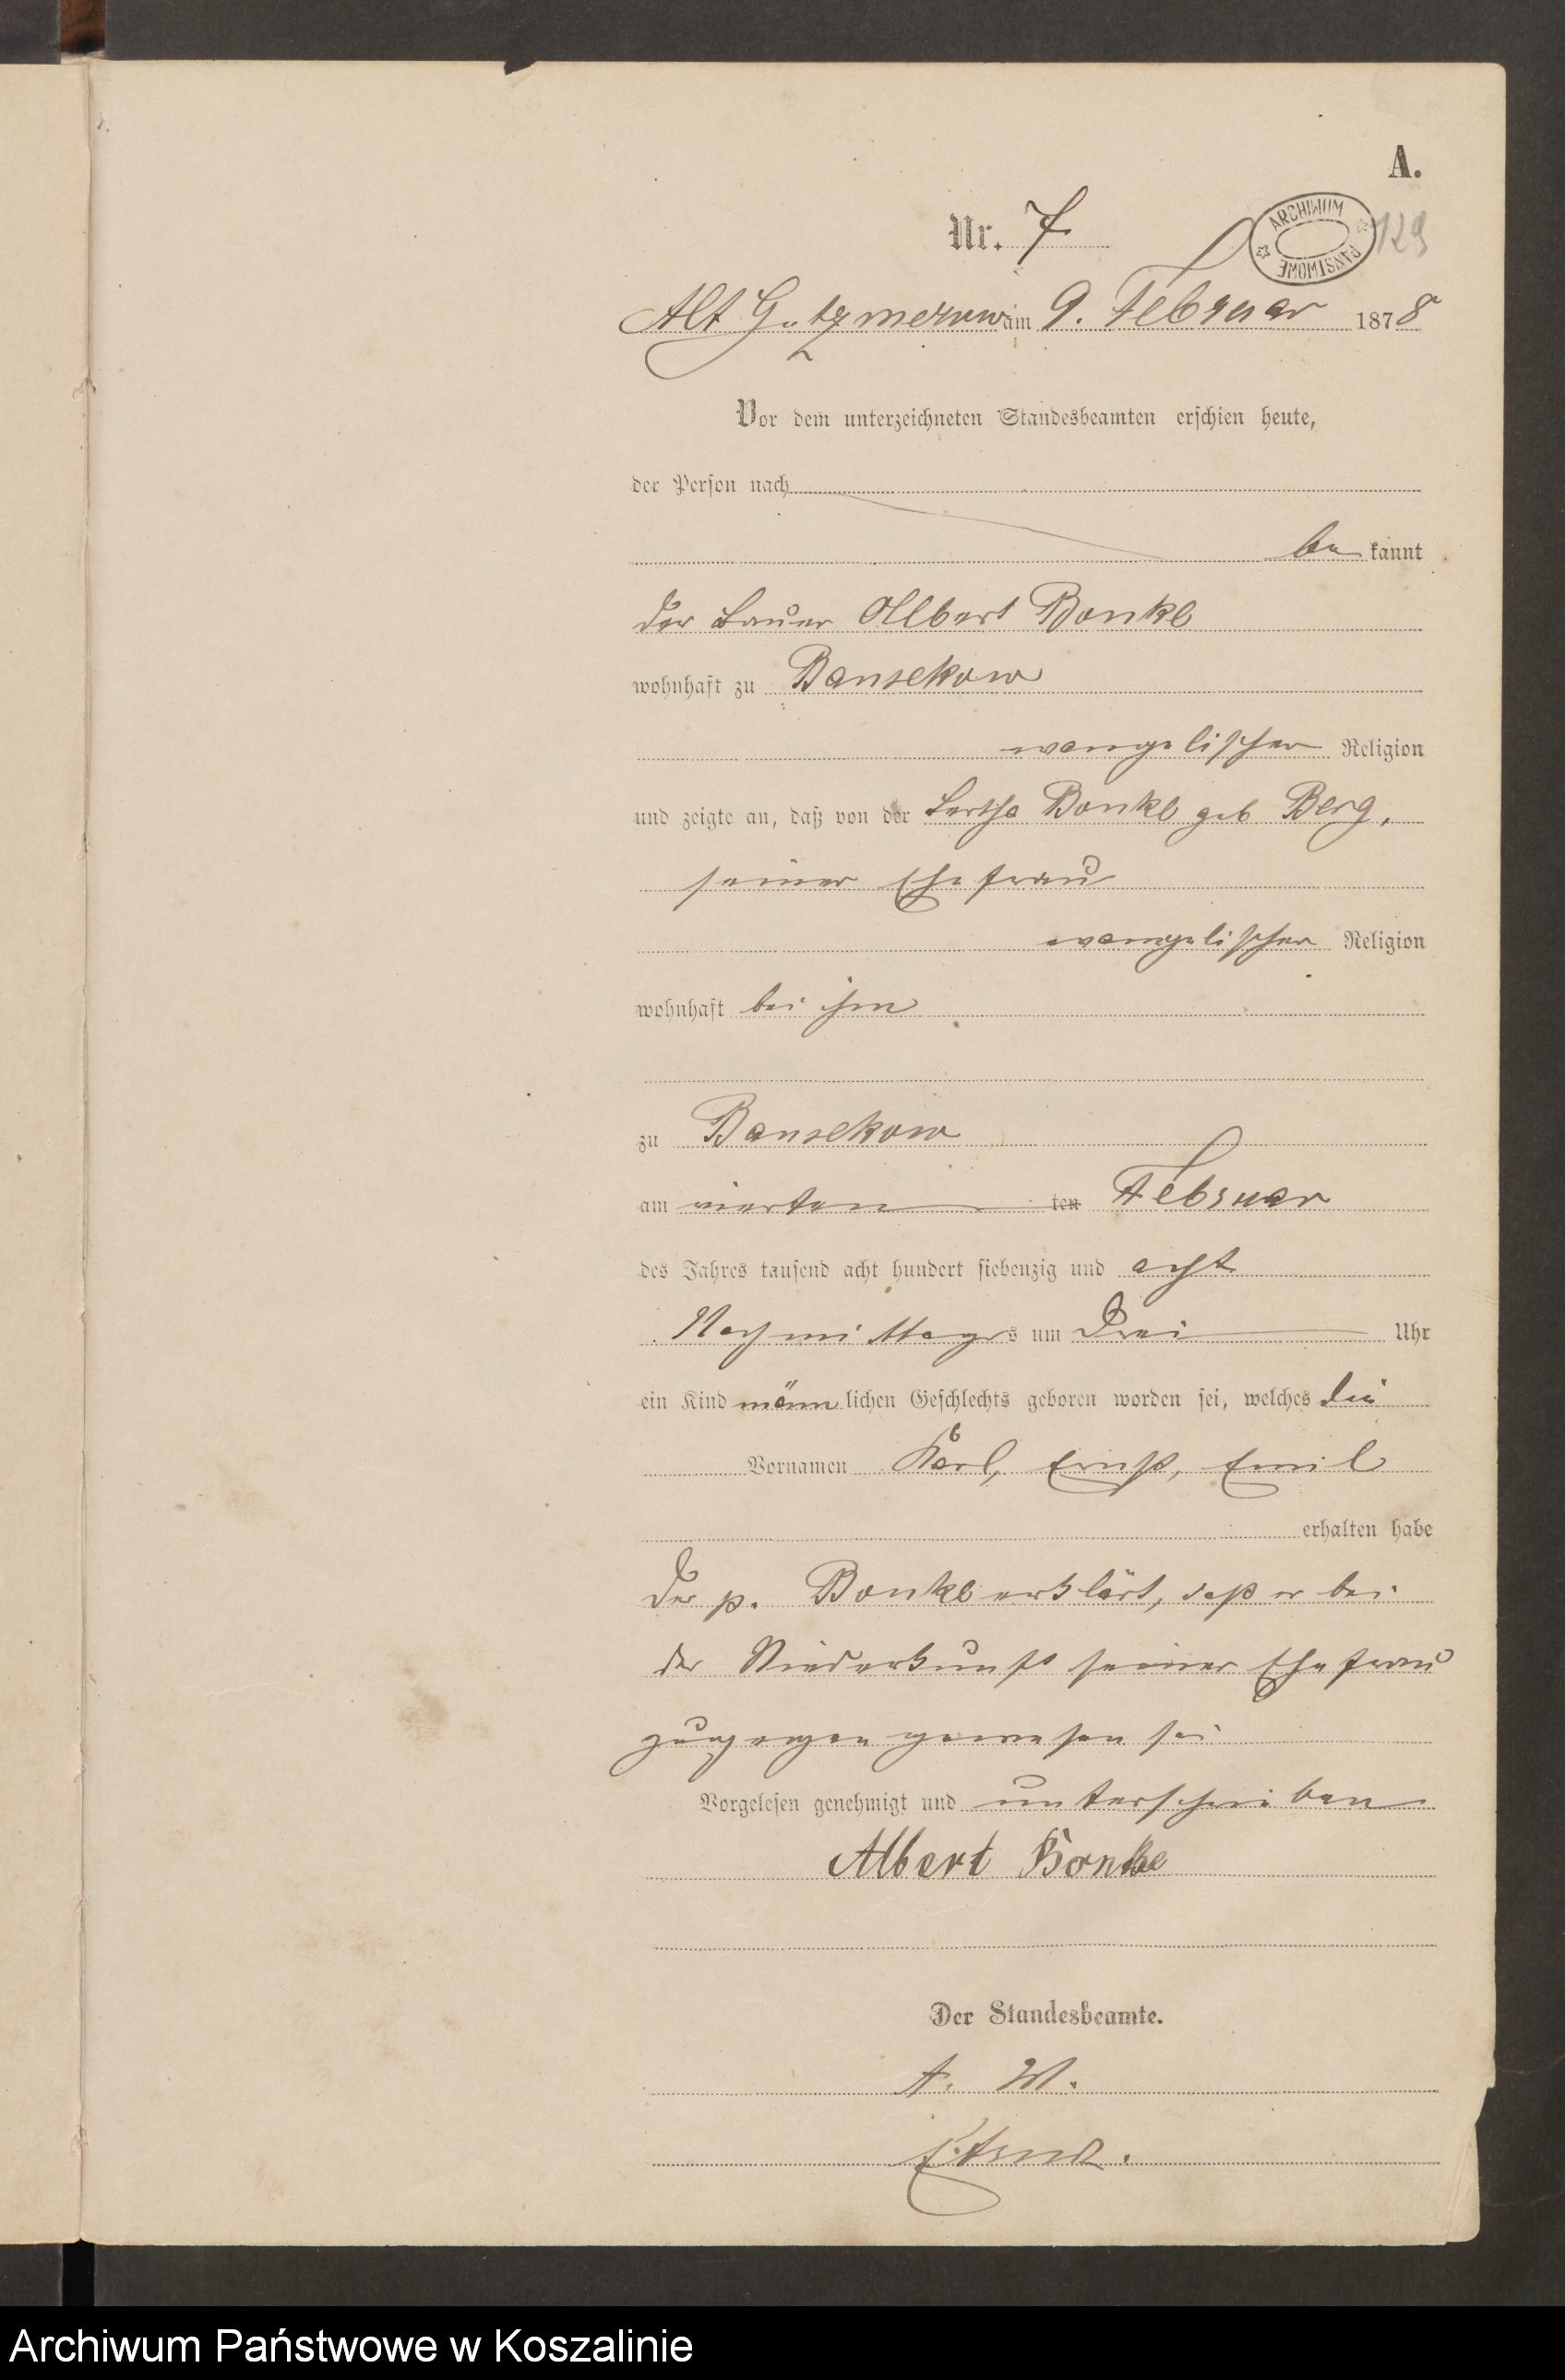 A.
Nr. 7.
ARCHIWUM PAŃSTWOWE
129
Alt Gutzmerow am 9. Februar 1878
Vor dem unterzeichneten Standesbeamten erschien heute,
der Person nach
be kannt
der Bauer Albert Bonke
wohnhaft zu Bansekow
evangelischer Religion
und zeigte an, daß von der Bertha Bonke geb Berg,
seiner Ehefrau
evangelischer Religion
wohnhaft bei ihm
zu Bansekow
am vierten ten Februar
des Jahres tausend acht hundert siebenzig und acht
Nachmittags um Drei Uhr
ein Kind männlichen Geschlechts geboren worden sei, welches die
Vornamen Karl, Ernst, Emil
erhalten habe
Der p. Bonke erklärt, daß er bei
der Niederkunft seiner Ehefrau
zugegen gewesen sei
Vorgelesen genehmigt und unterschrieben
Albert Bonke
Der Standesbeamte.
Archiwum Państwowe w Koszalinie